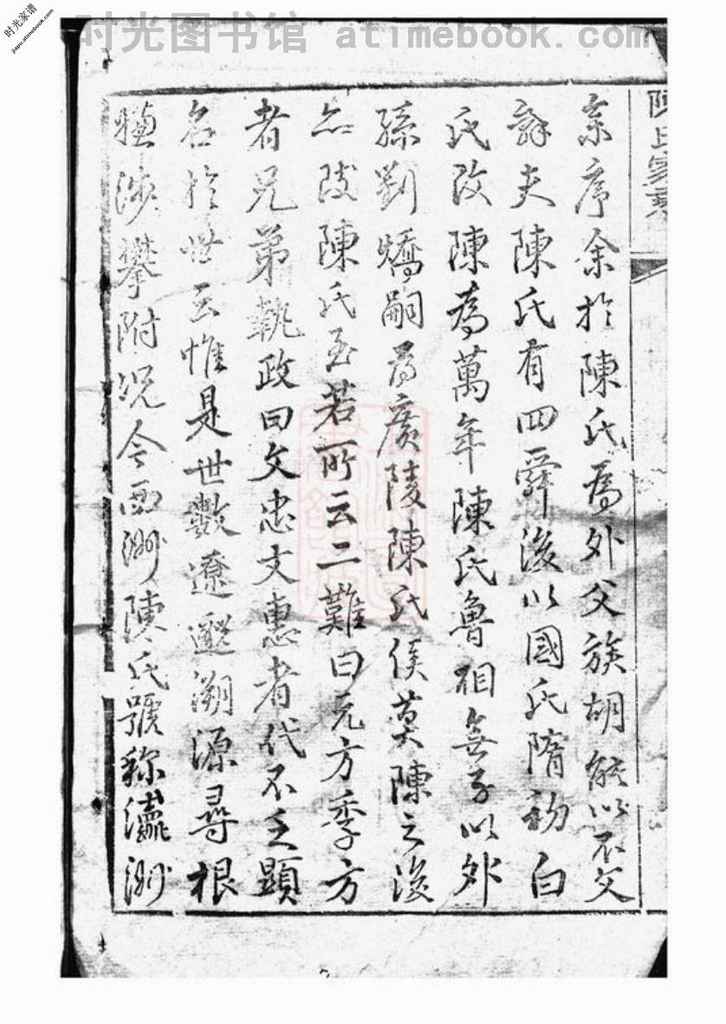 时光图书馆 atimebook.com
时光家谱
jiapu.atimebook.com
陳氏家乘
來序余於陳氏爲外父族胡能以不文
辭夫陳氏有四舜後以國氏隋初白
氏改陳為萬年陳氏魯相無子以外
孫劉矯嗣爲廣陵陳氏侯莫陳之後
亦改陳氏至若所云二難曰元方季方
者兄弟執政曰文忠文惠者代不乏顯
名於世云惟是世數遼邈溯源尋根
涉攀附况今西洲陳氏號称瀛洲